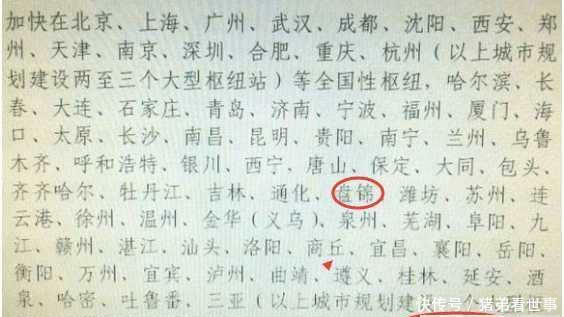 加快在北京、上海、广州、武汉、成都、沈阳、西安、郑
州、天津、南京、深圳、合肥、重庆、杭州(以上城市规
划建设两至三个大型枢纽站)等全国性枢纽,哈尔滨、长
春、大连、石家庄、青岛、济南、宁波、福州、厦门、海
口、太原、长沙、南昌、昆明、贵阳、南宁、兰州、乌鲁
木齐、呼和浩特、银川、西宁、唐山、保定、大同、包头、
齐齐哈尔、牡丹江、吉林、通化、盘锦、潍坊、苏州、连
云港、徐州、温州、金华(义乌)、泉州、芜湖、阜阳、九
江、赣州、湛江、汕头、洛阳、商丘、宜昌、襄阳、岳阳、
衡阳、万州、宜宾、泸州、曲靖、遵义、桂林、延安、酒
泉、哈密、吐鲁番、三亚(以上城市规划建
快传号/猪弟看世事